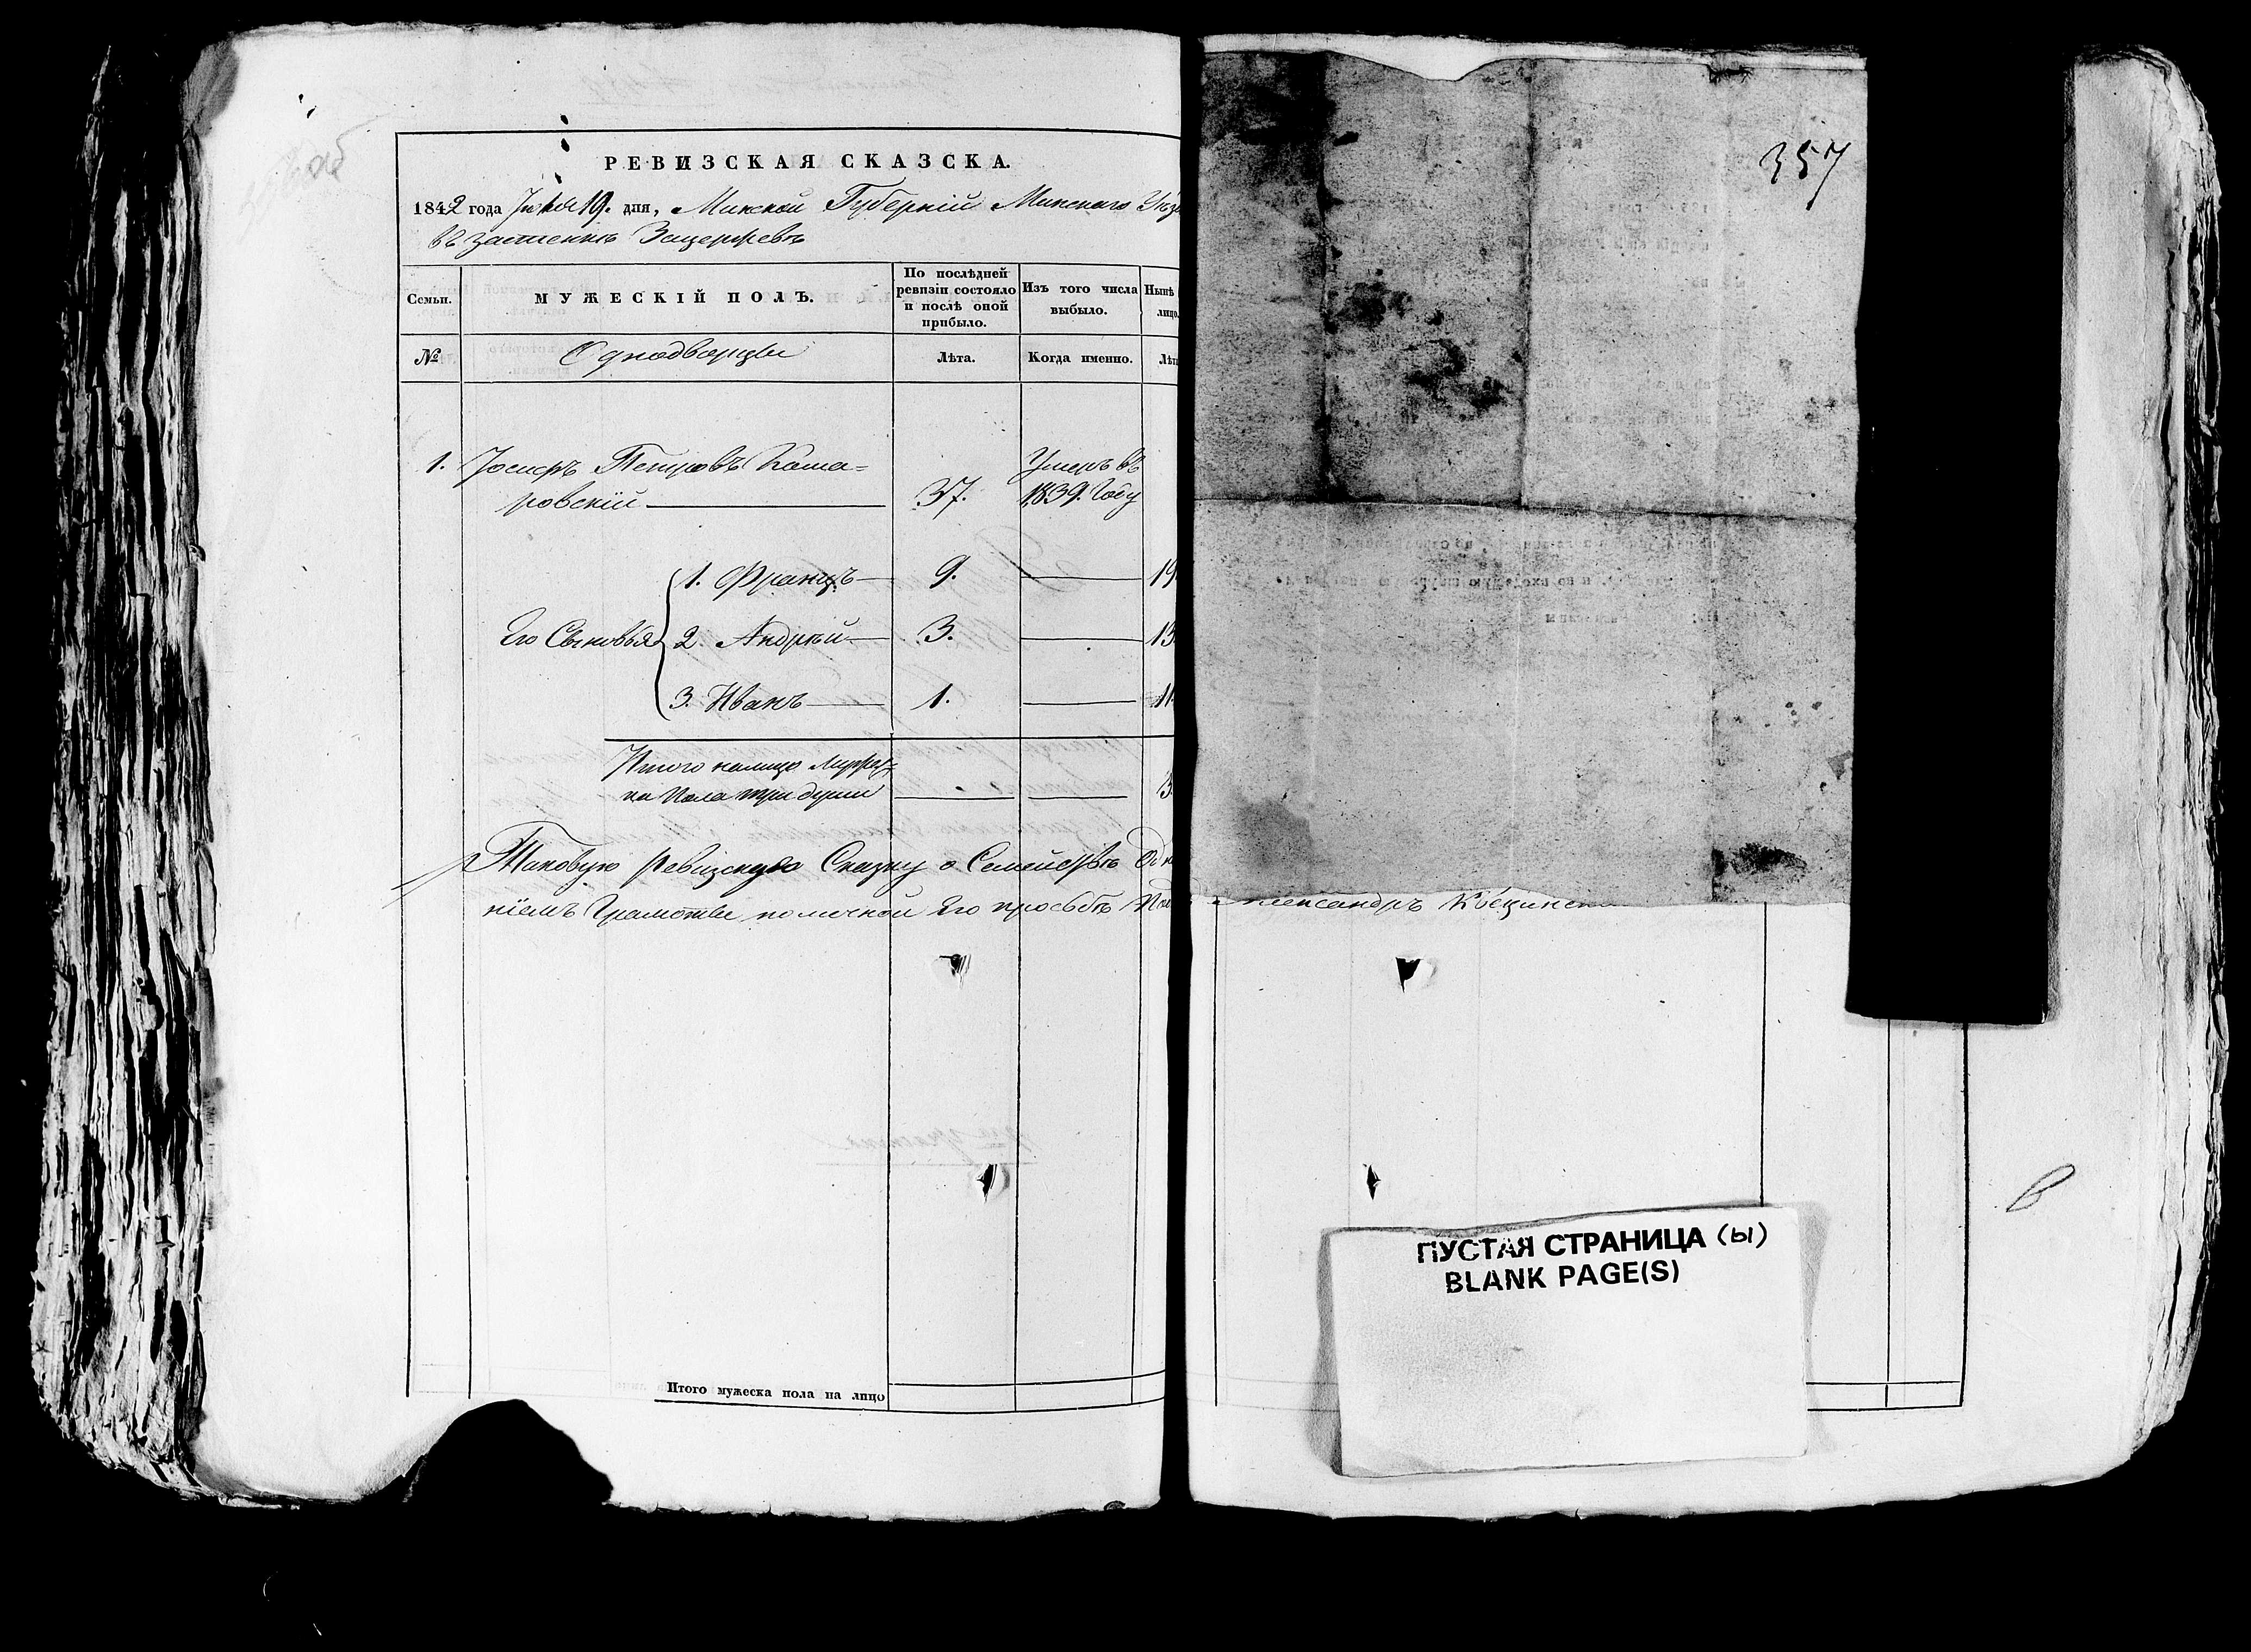 РЕВИЗСКАЯ СКАЗСКА.
1842 года Іюня 19. дня, Минской Губерніи Минскаго Уѣз
въ застенкѣ
Семьи.
МУЖЕСКІЙ ПОЛЪ.
По послѣдней ревизіи состояло и послѣ оной прибыло.
Изъ того числа выбыло.
Нынѣ лицо.
№
Однодворцы
Лѣта.
Когда именно.
Лѣт
1. Іосифъ Петровъ Кома=
ровскій
37.
Умеръ въ
1839. Году
Его Сыновья
1. Францъ 9. 19
2. Андрей 3. 13
3. Иванъ 1. 11
Итого налицо мужес=
ка пола три души 3
Таковую Ревизскую Сказку о Семействѣ Одн
ніемъ Грамоты по личной Его просьбѣ Под
Итого мужеска пола на лицо
357
лександръ
ПУСТАЯ СТРАНИЦА (Ы)
BLANK PAGE(S)